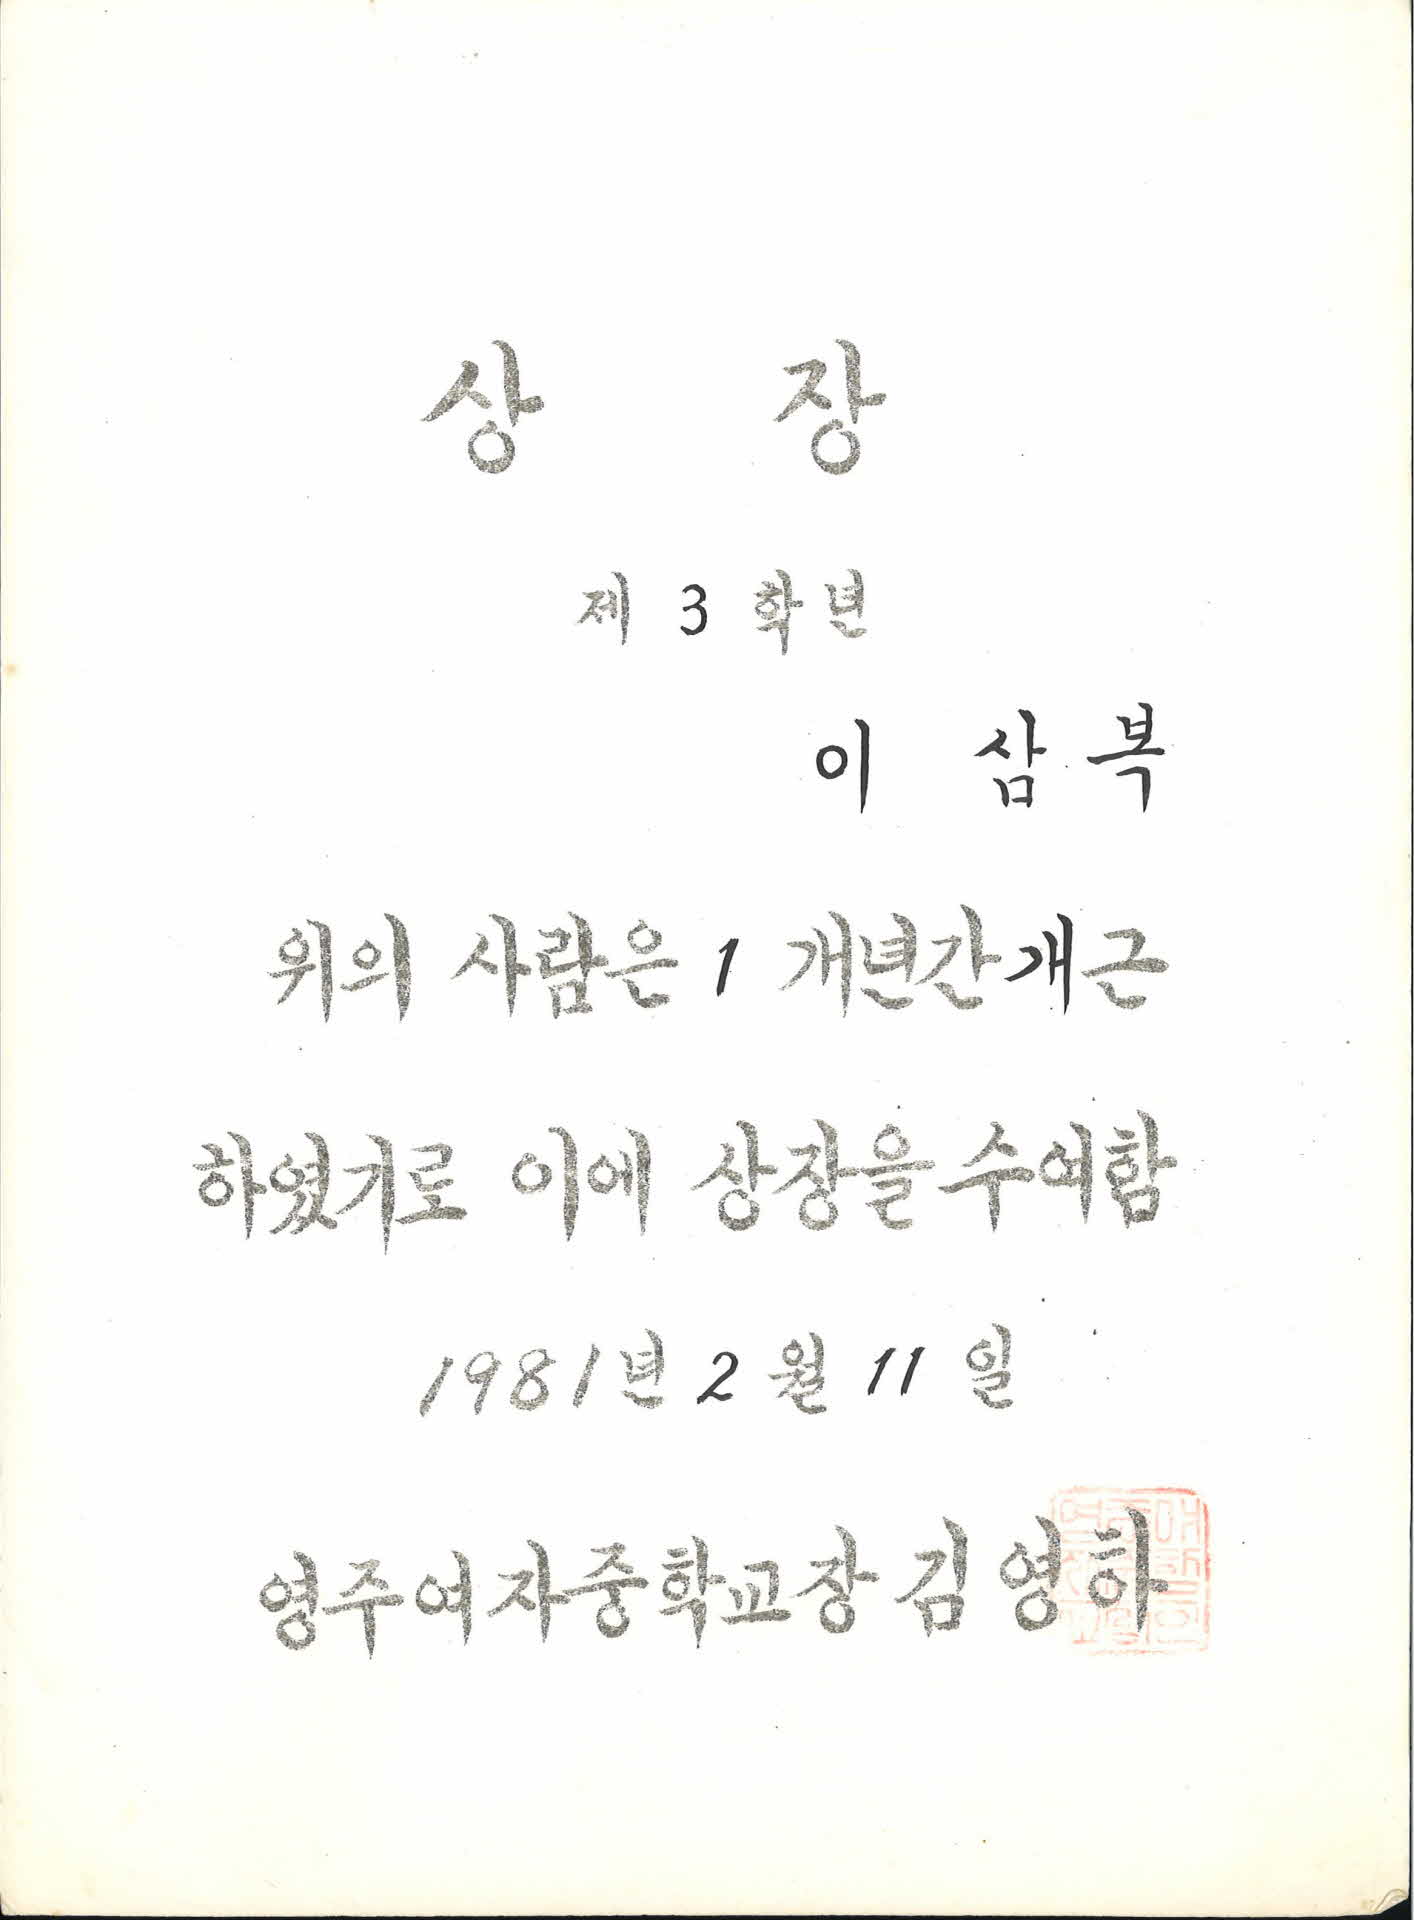 상 장
제 3 학년
이 삼복
위의 사람은 1 개년간 개근
하였기로 이에 상장을 수여함
1981년 2 월 11 일
영주여자중학교장 김영하